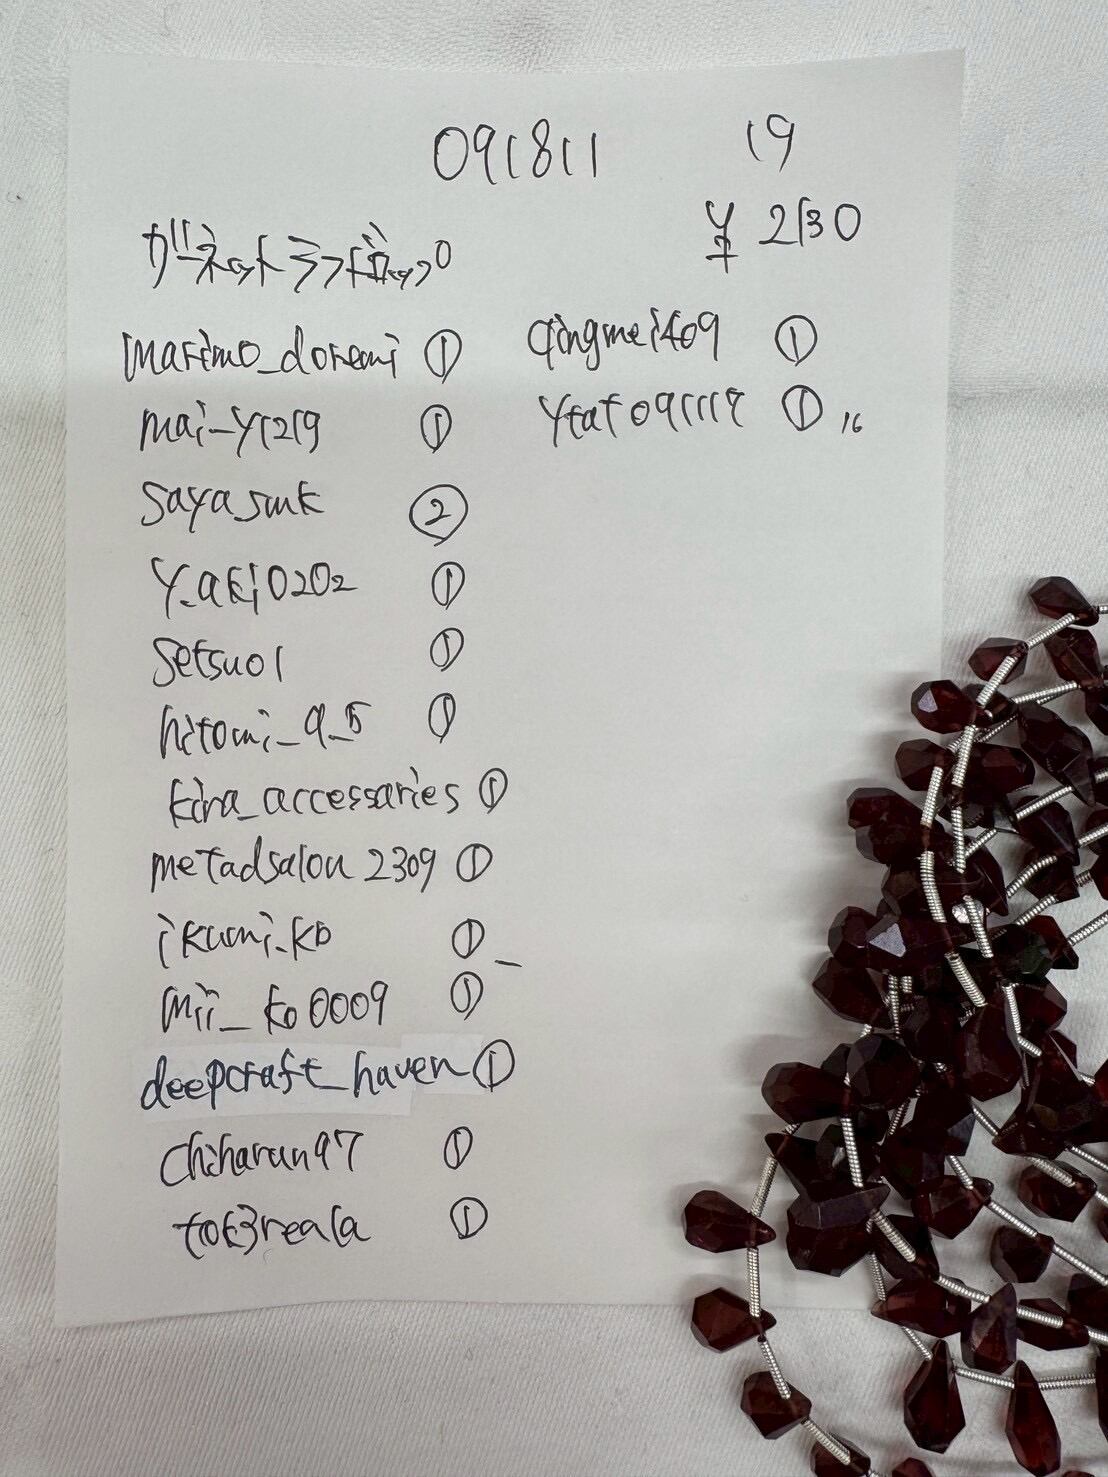 091811 19
¥2130
ガーネットラフドロップ
marimo_doremi ①
mai-y1219 ①
sayasmk ②
y.aki0202 ①
setsuo1 ①
hitomi_9_5 ①
kira_accessaries ①
metadsalon2309 ①
ikumi.ko ①
mii_ko0009 ①
deepcraft_haven ①
chiharun97 ①
①
qingmei409 ①
① 16